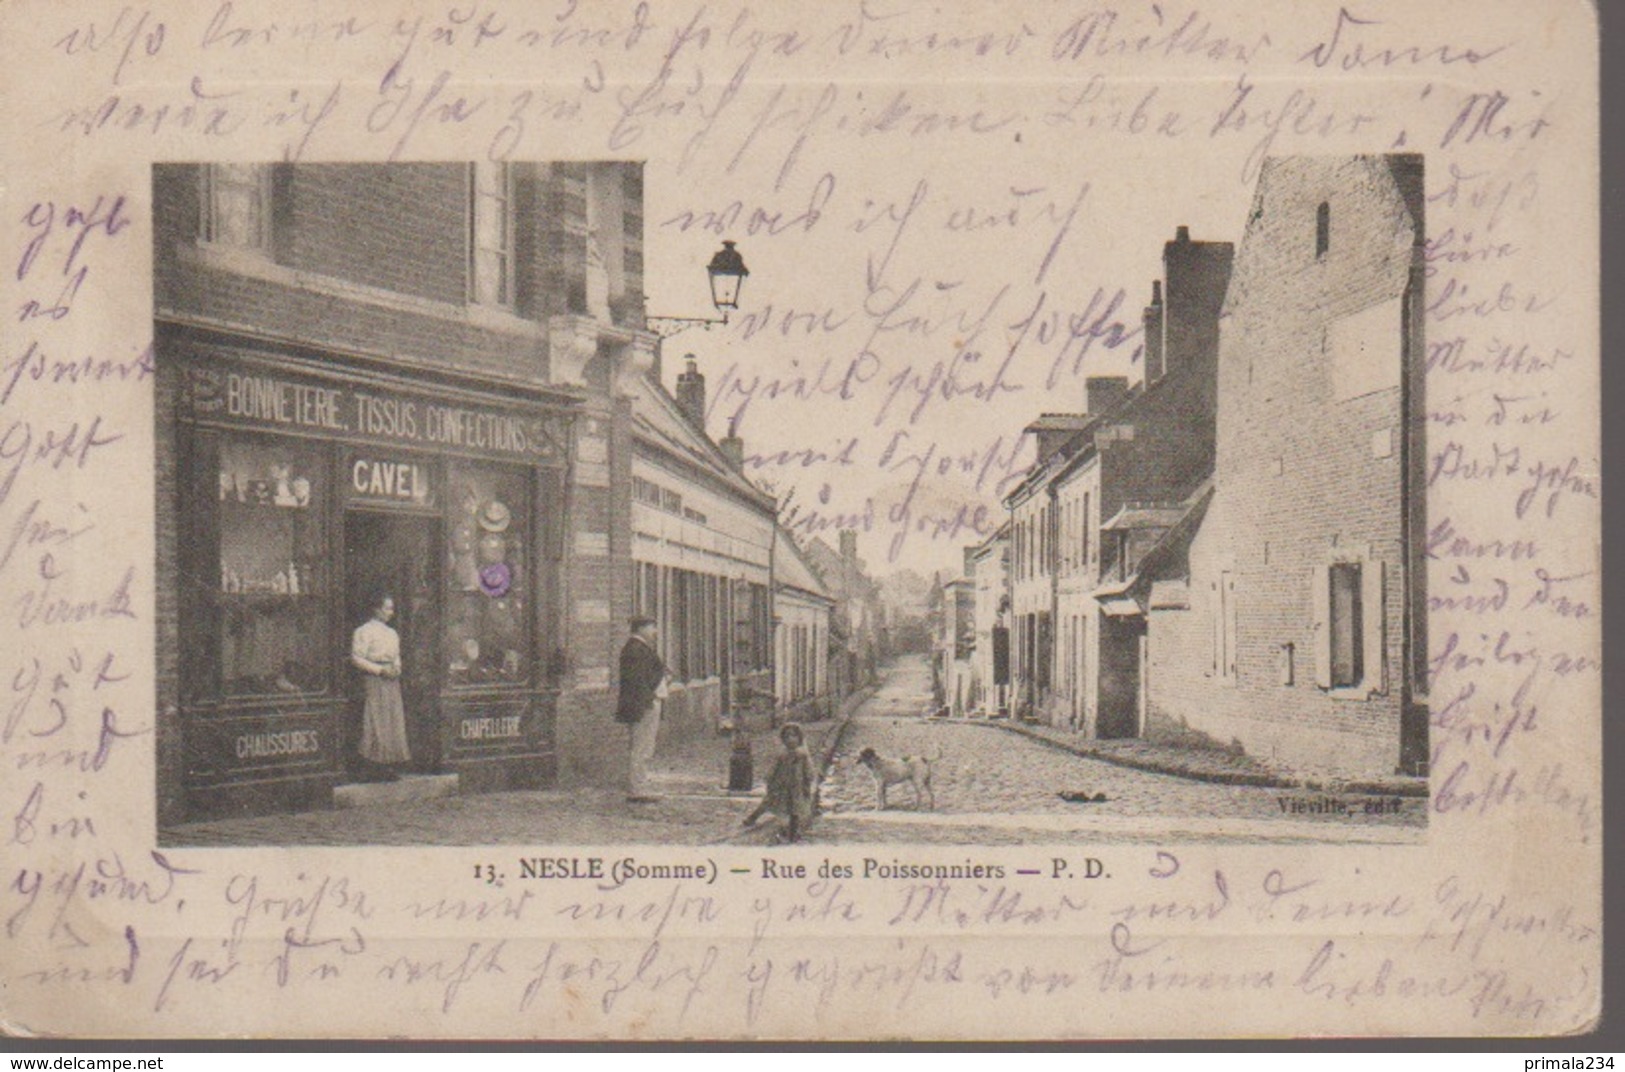 also lerne gut und folge deiner Mutter dann
werde ich Ihr zu Euch schicken. Liebe Tochter! Mir
geht
es
soweit
Gott
sei
Dank
gut
und
bin
gesund.
was ich auch
von Euch hoffe,
spiels schön
mit Schorsch
und Gretl
daß
Eure
liebe
Mutter
in die
Stadt gehen
kann
und den
heiligen
Christ
bestellen.
BONNETERIE, TISSUS, CONFECTIONS
CAVEL
CHAUSSURES
CHAPELLERIE
Viéville, édit.
13. NESLE (Somme) — Rue des Poissonniers — P. D.
Grüße mir meine gute Mutter und deine Geschwister
und sei Du recht herzlich gegrüßt von Deinem lieben Vater
delcampe.net
primala234